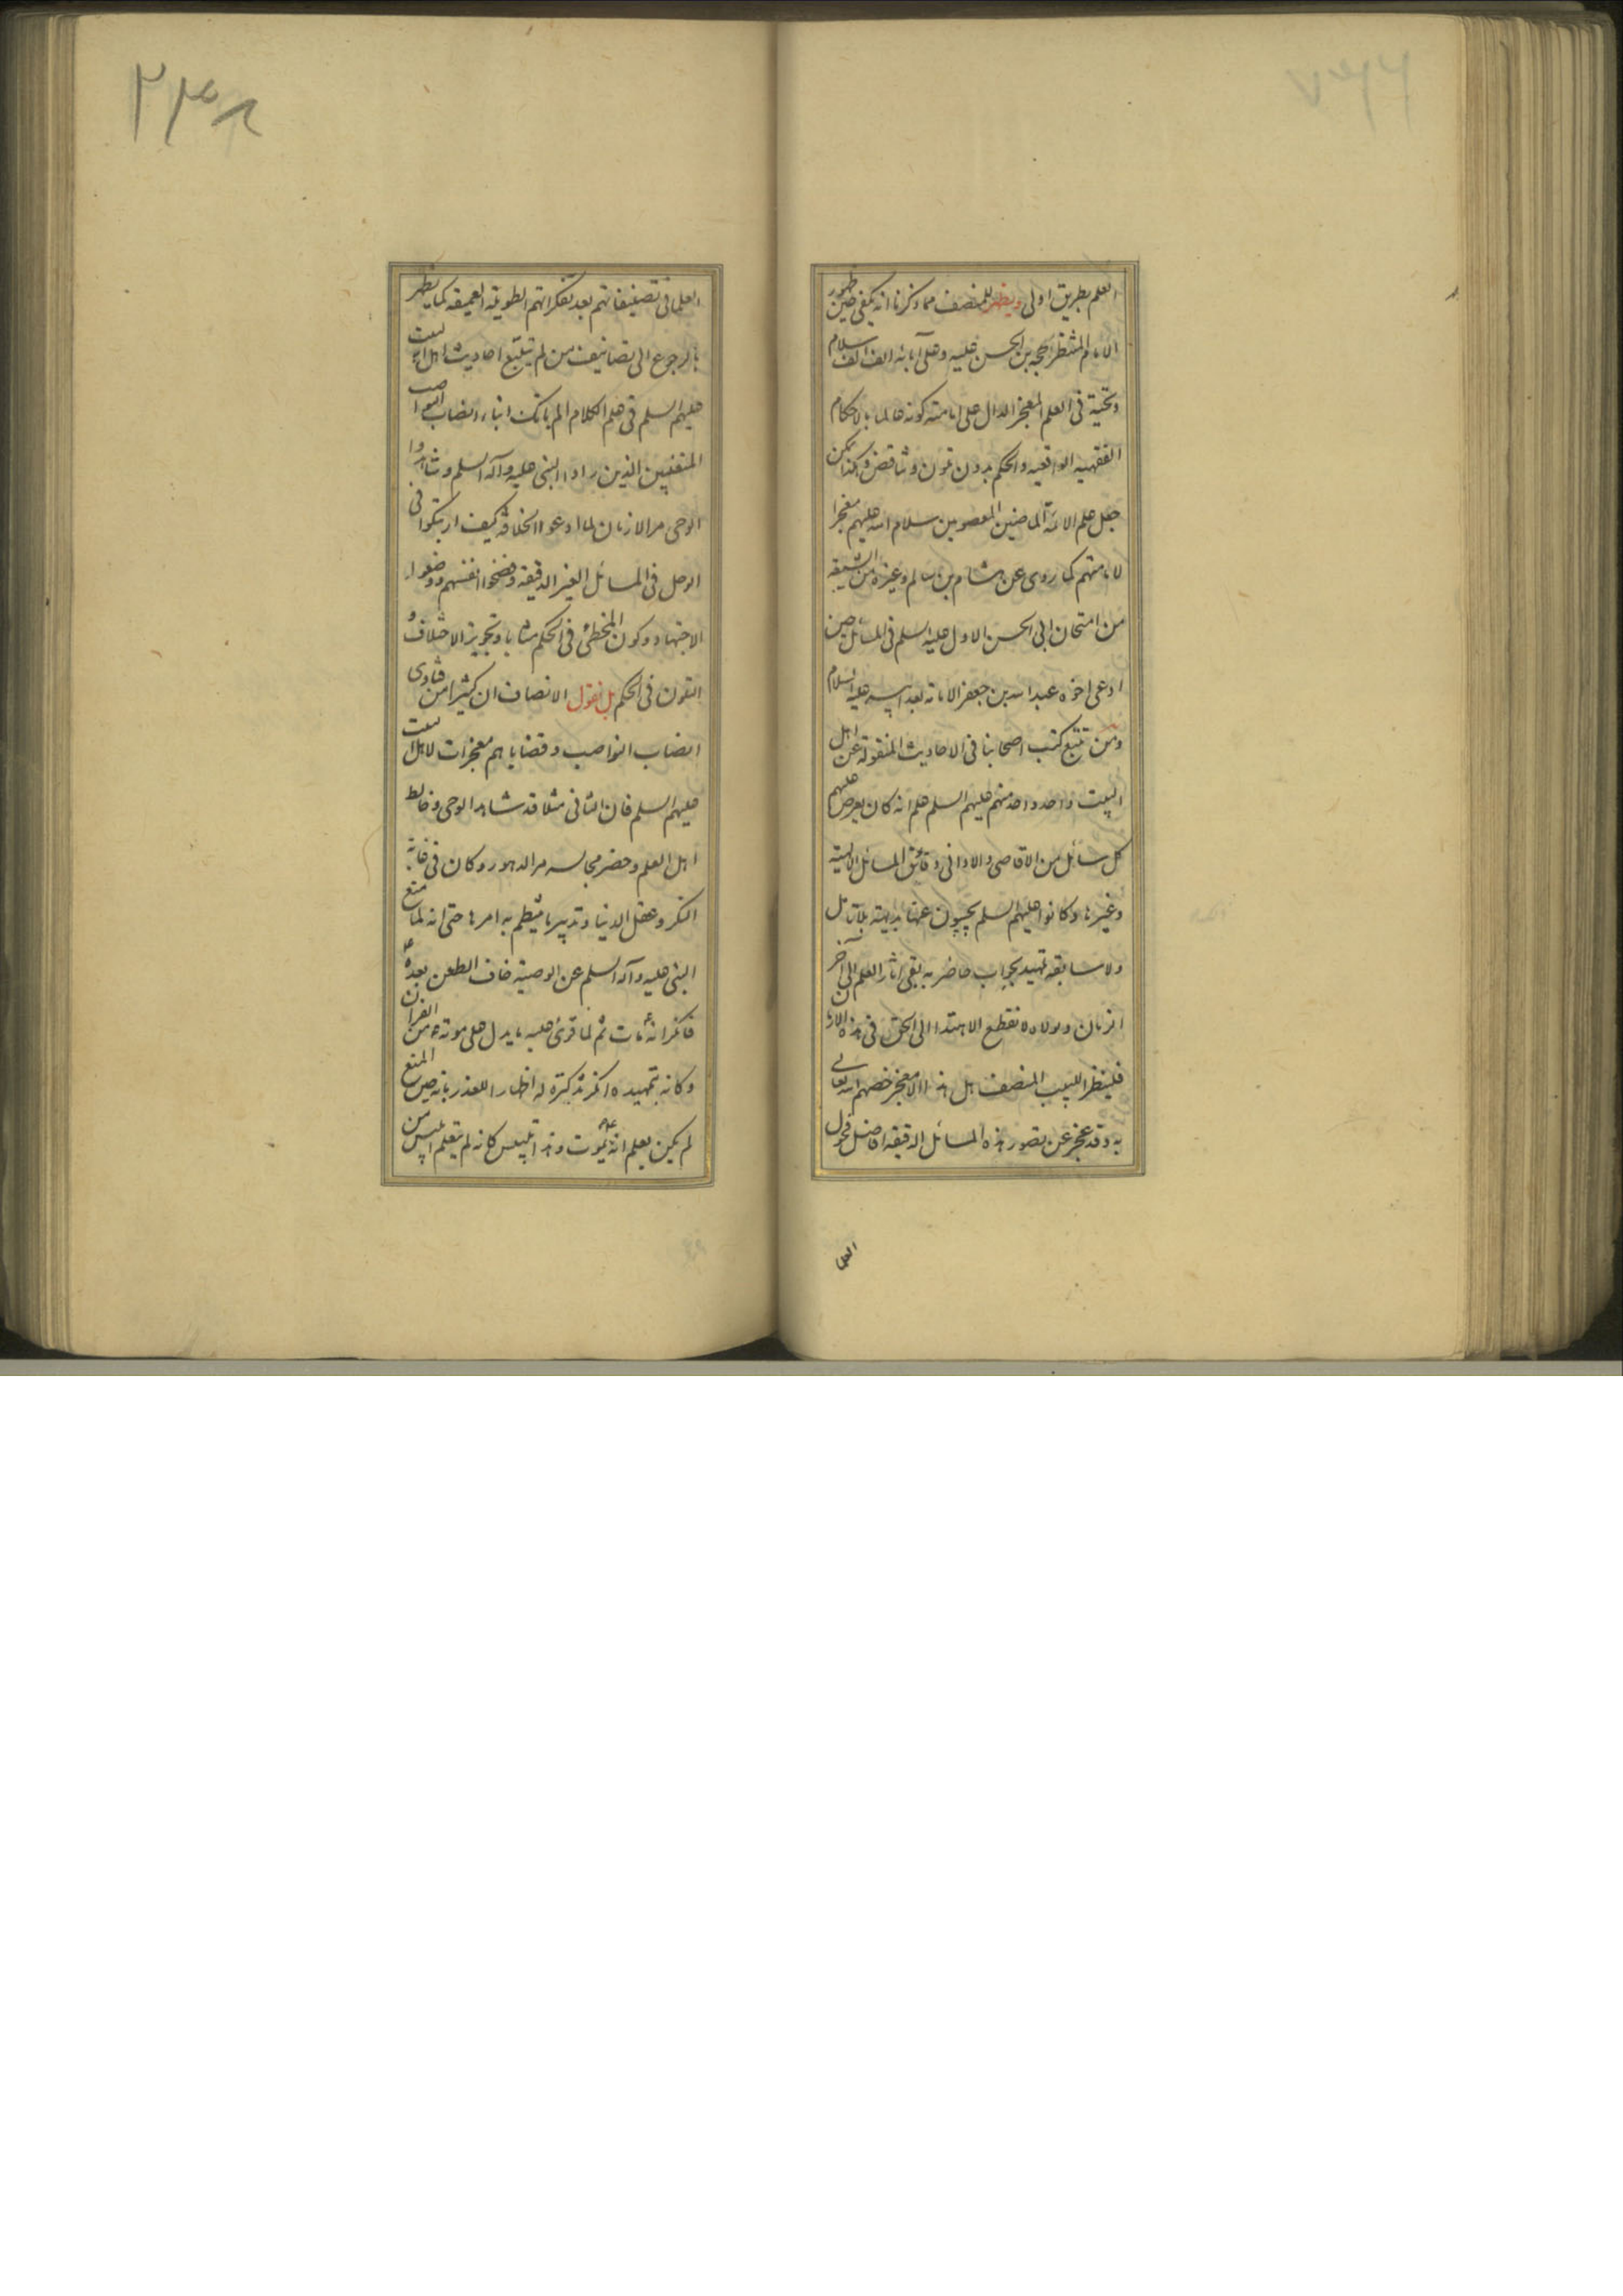 ٢٣٧
العلم بطريق اولى ويظهر للمنصف مما ذكرنا انه يكفى حين ظهور
الامام المنتظر الحجة بن الحسن عليه وعلى آبائه الف الف سلام
وتحية فى العلم المعجز الدال على امامته كونه عالما بالاحكام
الفقهيه الواقعيه والحكم بدون تلون وتناقض وكذا يمكن
جعل علم الائمة الماضين المعصومين سلام الله عليهم معجزا
لامامتهم كما روى عن هشام بن سالم وغيره من الشيعة
من امتحان ابى الحسن الاول عليه السلم فى المسائل حين
ادعى اخوه عبد الله بن جعفر الامامة بعد ابيه عليه السلام
ومن تتبع كتب اصحابنا فى الاحاديث المنقولة عن اهل
البيت واحد واحد منهم عليهم السلم علم انه كان يعرض عليهم
كل سائل من الاقاصى والادانى دقائق المسائل الالهية
وغيرها وكانوا عليهم السلم يجيبون عنها بديهة بلا تامل
ولا سابقه تمهيد بجواب حاضر به بقى اثار العلم الى آخر
الزمان ولولاه لانقطع الاهتداء الى الحق فى هذه الازمان
فلينظر اللبيب المنصف هل هذا الا معجز خصهم الله تعالى
به وقد عجز عن تصور هذه المسائل الدقيقه افاضل فحول
العلما
٢٣٨
العلما فى تصنيفاتهم بعد تفكراتهم الطويلة العميقه كما يظهر
بالرجوع الى تصانيف من لم يتتبع احاديث اهل البيت
عليهم السلم فى علم الكلام الم ياتك انباء انصاب النواصب
المنفيين الذين راوا النبى عليه وآله السلم وشاهدوا
الوحى مر الازمان لما ادعوا الخلافة كيف ارتبكوا فى
الوحل فى المسائل الغير الدقيقه وفضحوا انفسهم ووضعوا
الاجتهاد وكون المخطئ فى الحكم مثابا وتجويز الاختلاف و
التلون فى الحكم بل نقول الانصاف ان كثيرا من فتاوى
انصاب النواصب وقضاياهم معجزات لاهل البيت
عليهم السلم فان الثانى مثلا قد شاهد الوحى وخالط
اهل العلم وحضر مجالسه مر الدهور وكان فى غاية
النكر وعقل الدنيا وتدبير ما ينتظم به امرها حتى انه لما منع
النبى عليه وآله السلم عن الوصية خاف الطعن بعده
فانكر انه مات ثم لما قرئ عليه ما يدل على موته من القرآن
وكانه بتمهيده انكر تذكره له اظهارا للعذر بانه حين المنع
لم يكن يعلم انه يموت وهذا تلبيس كانه لم يتعلم ابليس من